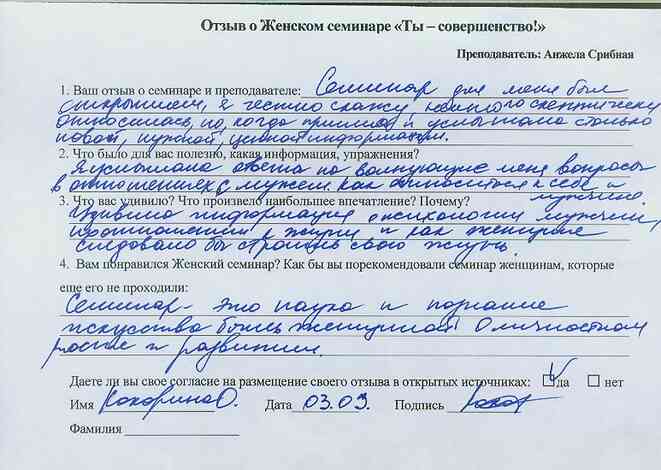 Отзыв о Женском семинаре «Ты – совершенство!»
Преподаватель: Анжела Срибная
1. Ваш отзыв о семинаре и преподавателе: Семинар для меня был
открытием, я честно скажу, немного скептически
относилась, но, когда пришла и услышала столько
новой, нужной, ценной информации.
2. Что было для вас полезно, какая информация, упражнения?
Я услышала ответы на волнующие меня вопросы
в отношениях с мужем. Как относиться к себе и
мужчине.
3. Что вас удивило? Что произвело наибольшее впечатление? Почему?
Удивила информация о психологии мужчин,
их отношении к жизни и как женщине
следовало бы строить свою жизнь.
4. Вам понравился Женский семинар? Как бы вы порекомендовали семинар женщинам, которые
еще его не проходили:
Семинар - это наука и познание
искусства быть женщиной. О личностном
росте и развитии.
Даете ли вы свое согласие на размещение своего отзыва в открытых источниках: да нет
Имя Кокорина О. Дата 03.03. Подпись
Фамилия